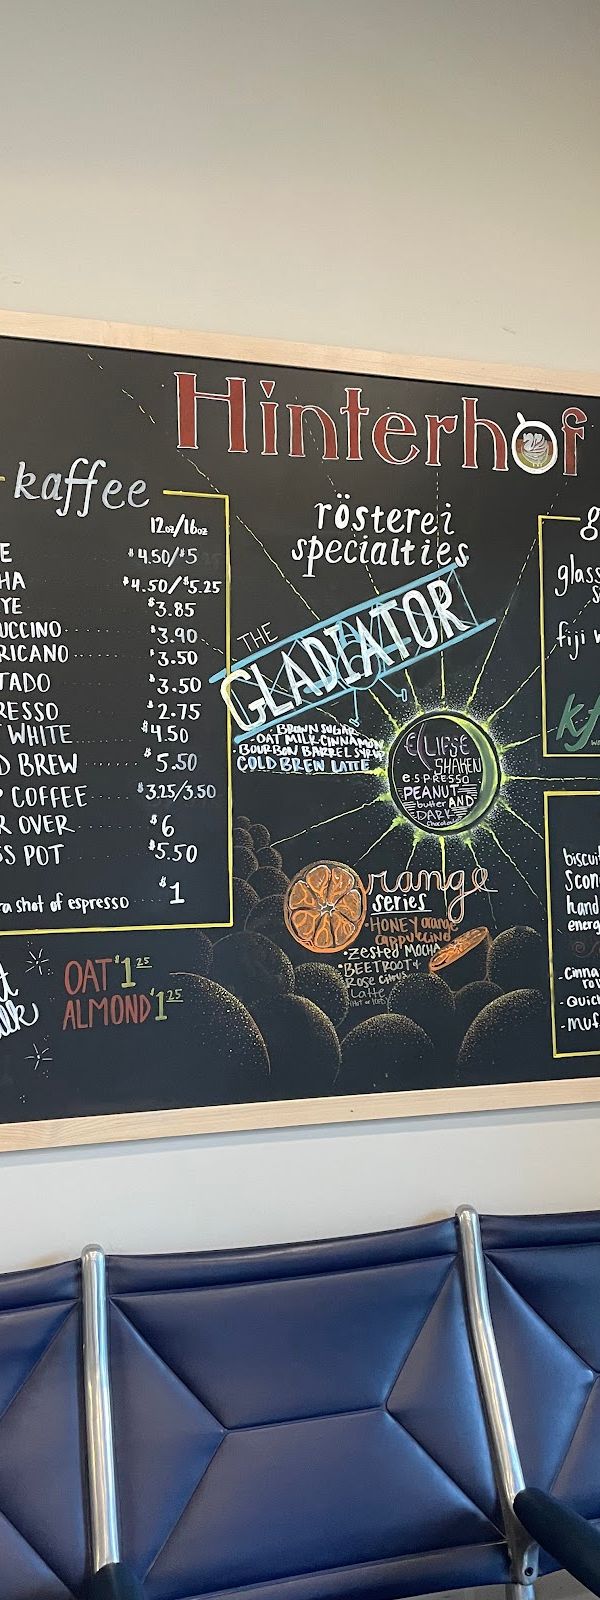 Hinterhof
kaffee
12oz/16oz
E $4.50/$5
HA $4.50/$5.25
YE $3.85
UCCINO $3.90
RICANO $3.50
TADO $3.50
RESSO $2.75
T WHITE $4.50
D BREW $5.50
P COFFEE $3.25/3.50
R OVER $6
SS POT $5.50
ra shot of espresso $1
OAT $1.25
ALMOND $1.25
rösterei
specialties
THE
GLADIATOR
BROWN SUGAR
OAT MILK CINNAMON
BOURBON BARREL
COLD BREW LATTE
ECLIPSE
SHAKEN
espresso
PEANUT
butter AND
DARK
chocolate
Orange
series
• HONEY orange
cappuccino
• Zested MOCHA
• BEETROOT +
Rose citrus
Latte
g
glass
s
fiji w
kf
biscui
Scon
hand
energ
-Cinna
ro
-Quic
-MUF